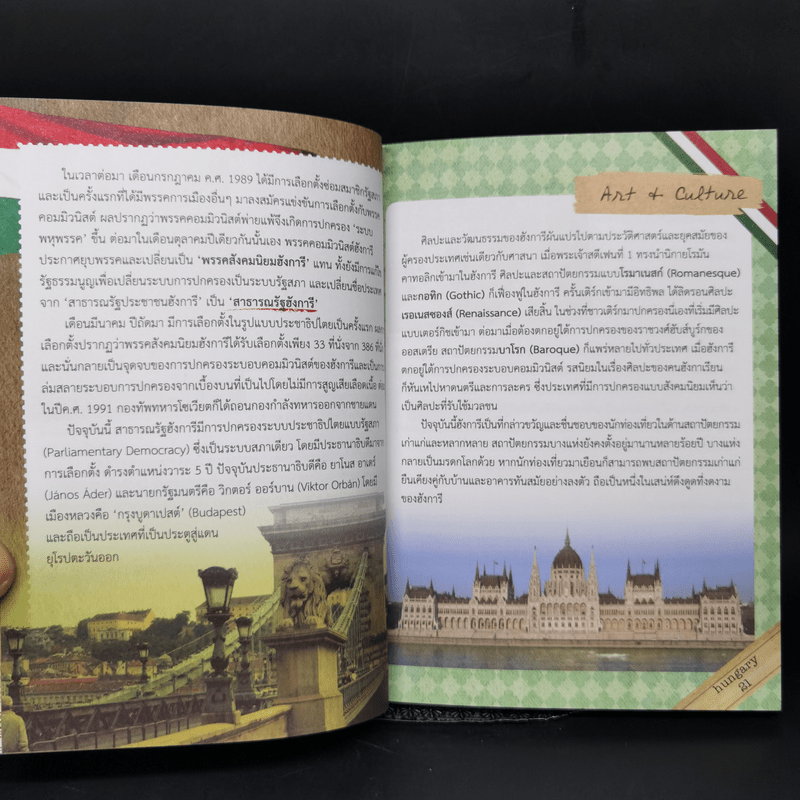 ในเวลาต่อมา เดือนกรกฎาคม ค.ศ. 1989 ได้มีการเลือกตั้งซ่อมสมาชิกรัฐสภา
และเป็นครั้งแรกที่ได้มีพรรคการเมืองอื่นๆ มาลงสมัครแข่งขันการเลือกตั้งกับพรรค
คอมมิวนิสต์ ผลปรากฏว่าพรรคคอมมิวนิสต์พ่ายแพ้จึงเกิดการปกครอง 'ระบบ
พหุพรรค' ขึ้น ต่อมาในเดือนตุลาคมปีเดียวกันนั้นเอง พรรคคอมมิวนิสต์ฮังการี
ประกาศยุบพรรคและเปลี่ยนเป็น 'พรรคสังคมนิยมฮังการี' แทน ทั้งยังมีการแก้ไข
รัฐธรรมนูญเพื่อเปลี่ยนระบบการปกครองเป็นระบบรัฐสภา และเปลี่ยนชื่อประเทศ
จาก 'สาธารณรัฐประชาชนฮังการี' เป็น 'สาธารณรัฐฮังการี'
เดือนมีนาคม ปีถัดมา มีการเลือกตั้งในรูปแบบประชาธิปไตยเป็นครั้งแรก ผลการ
เลือกตั้งปรากฏว่าพรรคสังคมนิยมฮังการีได้รับเลือกตั้งเพียง 33 ที่นั่งจาก 386 ที่นั่ง
และนั่นกลายเป็นจุดจบของการปกครองระบอบคอมมิวนิสต์ของฮังการีและเป็นการ
ล่มสลายระบอบการปกครองจากเบื้องบนที่เป็นไปโดยไม่มีการสูญเสียเลือดเนื้อ ต่อมา
ในปีค.ศ. 1991 กองทัพทหารโซเวียตก็ได้ถอนกองกำลังทหารออกจากชายแดน
ปัจจุบันนี้ สาธารณรัฐฮังการีมีการปกครองระบบประชาธิปไตยแบบรัฐสภา
(Parliamentary Democracy) ซึ่งเป็นระบบสภาเดียว โดยมีประธานาธิบดีมาจาก
การเลือกตั้ง ดำรงตำแหน่งวาระ 5 ปี ปัจจุบันประธานาธิบดีคือ ยาโนส อาเดร์
(János Áder) และนายกรัฐมนตรีคือ วิกตอร์ ออร์บาน (Viktor Orbán) โดยมี
เมืองหลวงคือ 'กรุงบูดาเปสต์' (Budapest)
และถือเป็นประเทศที่เป็นประตูสู่แดน
ยุโรปตะวันออก
Art & Culture
ศิลปะและวัฒนธรรมของฮังการีผันแปรไปตามประวัติศาสตร์และยุคสมัยของ
ผู้ครองประเทศเช่นเดียวกับศาสนา เมื่อพระเจ้าสตีเฟนที่ 1 ทรงนำนิกายโรมัน
คาทอลิกเข้ามาในฮังการี ศิลปะและสถาปัตยกรรมแบบโรมาเนสก์ (Romanesque)
และกอทิก (Gothic) ก็เฟื่องฟูในฮังการี ครั้นเติร์กเข้ามามีอิทธิพล ได้ลิดรอนศิลปะ
เรอเนสซองส์ (Renaissance) เสียสิ้น ในช่วงที่ชาวเติร์กมาปกครองนี้เองที่เริ่มมีศิลปะ
แบบเตอร์กิชเข้ามา ต่อมาเมื่อต้องตกอยู่ใต้การปกครองของราชวงศ์ฮับส์บูร์กของ
ออสเตรีย สถาปัตยกรรมบาโรก (Baroque) ก็แพร่หลายไปทั่วประเทศ เมื่อฮังการี
ตกอยู่ใต้การปกครองระบอบคอมมิวนิสต์ รสนิยมในเรื่องศิลปะของคนฮังกาเรียน
ก็หันเหไปหาดนตรีและการละคร ซึ่งประเทศที่มีการปกครองแบบสังคมนิยมเห็นว่า
เป็นศิลปะที่รับใช้มวลชน
ปัจจุบันนี้ฮังการีเป็นที่กล่าวขวัญและชื่นชอบของนักท่องเที่ยวในด้านสถาปัตยกรรม
เก่าแก่และหลากหลาย สถาปัตยกรรมบางแห่งยังคงตั้งอยู่มานานหลายร้อยปี บางแห่ง
กลายเป็นมรดกโลกด้วย หากนักท่องเที่ยวมาเยือนก็สามารถพบสถาปัตยกรรมเก่าแก่
ยืนเคียงคู่กับบ้านและอาคารทันสมัยอย่างลงตัว ถือเป็นหนึ่งในเสน่ห์ดึงดูดที่งดงาม
ของฮังการี
hungary
21